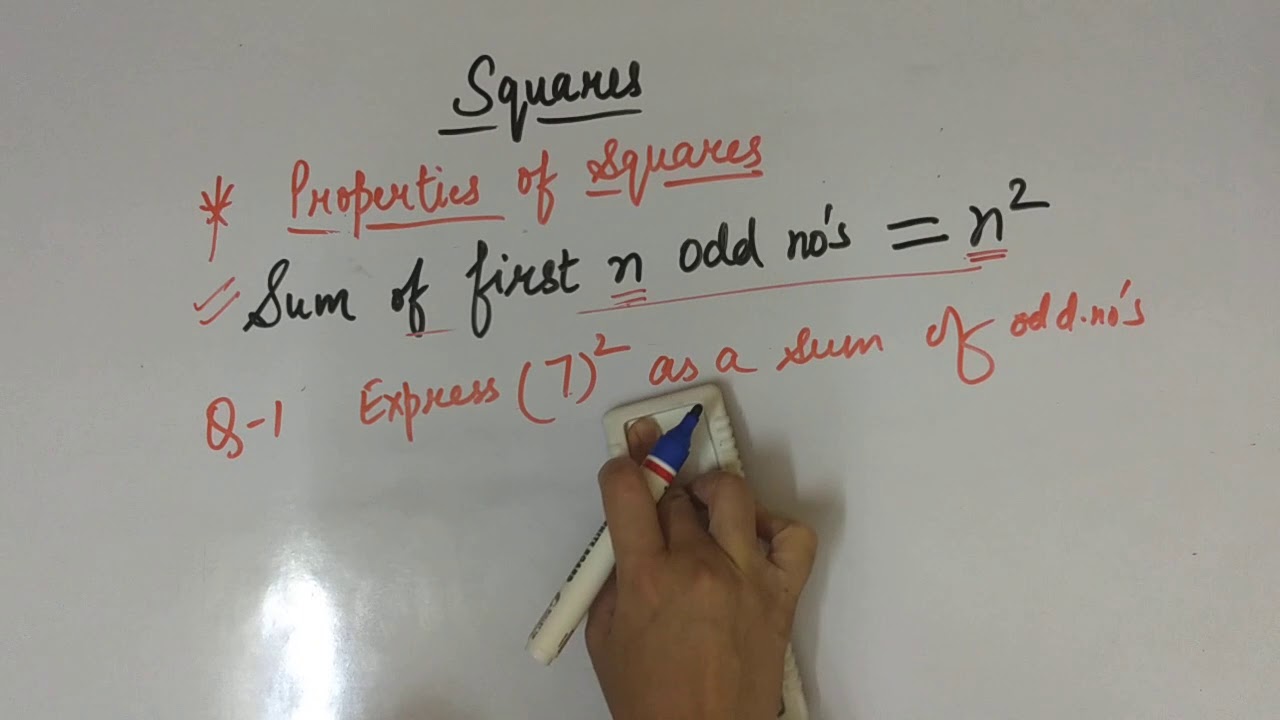 Squares
* Properties of Squares
Sum of first n odd no's = n²
Q-1 Express (7)² as a sum of odd.no's